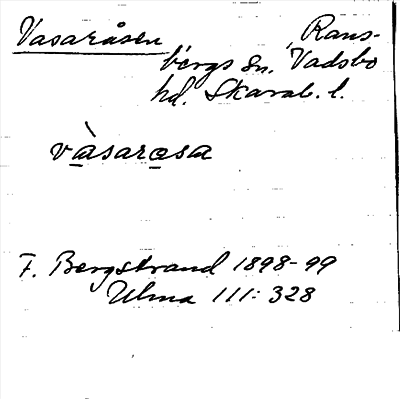 Vasaråsen Rans-
bergs sn. Vadsbo
hd. Skarab. l.
vàsarosa
F. Bergstrand 1898-99
Ulma 111: 328